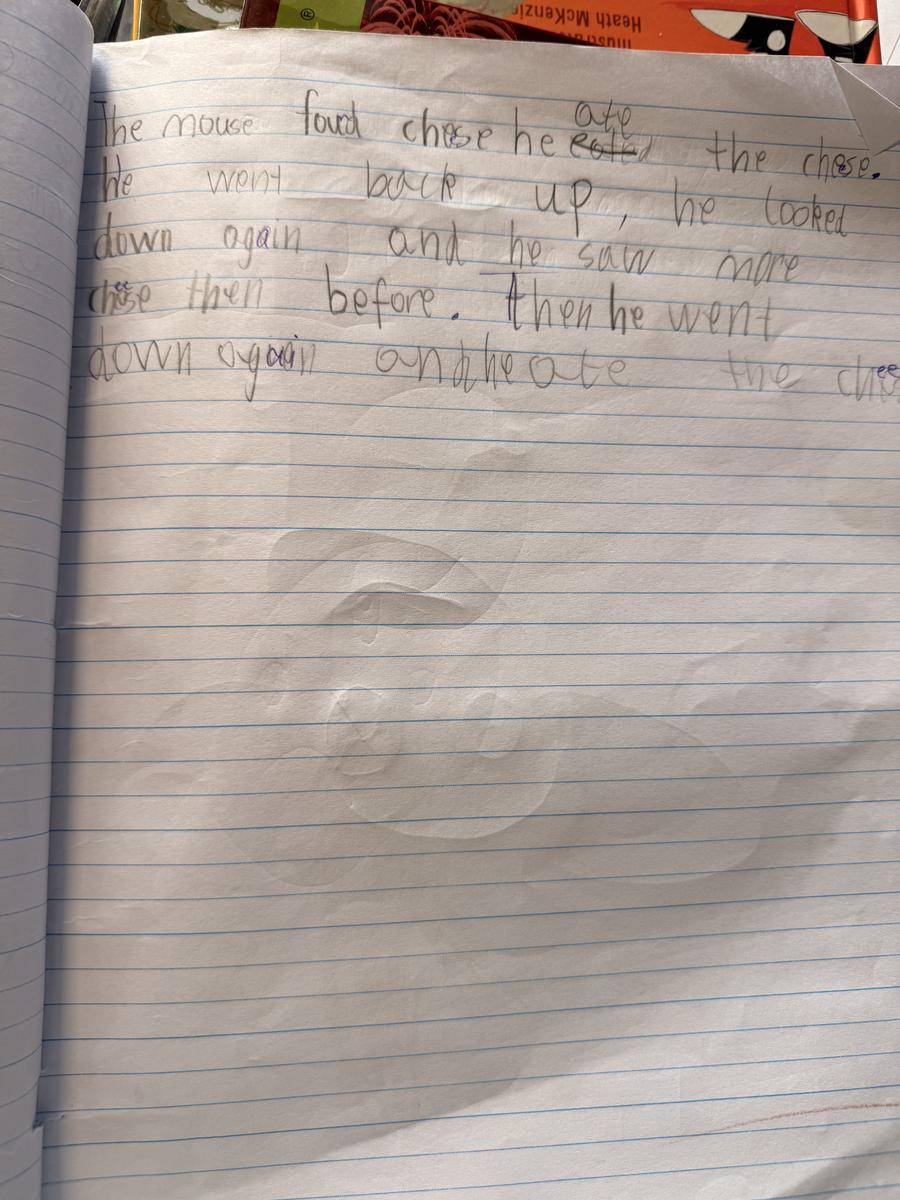 Illustra
Heath McKenzie
The mouse foud chese he ate eated the chese.
He went back up, he looked
down again and he saw more
cheese then before. Then he went
down again and he ate the chees